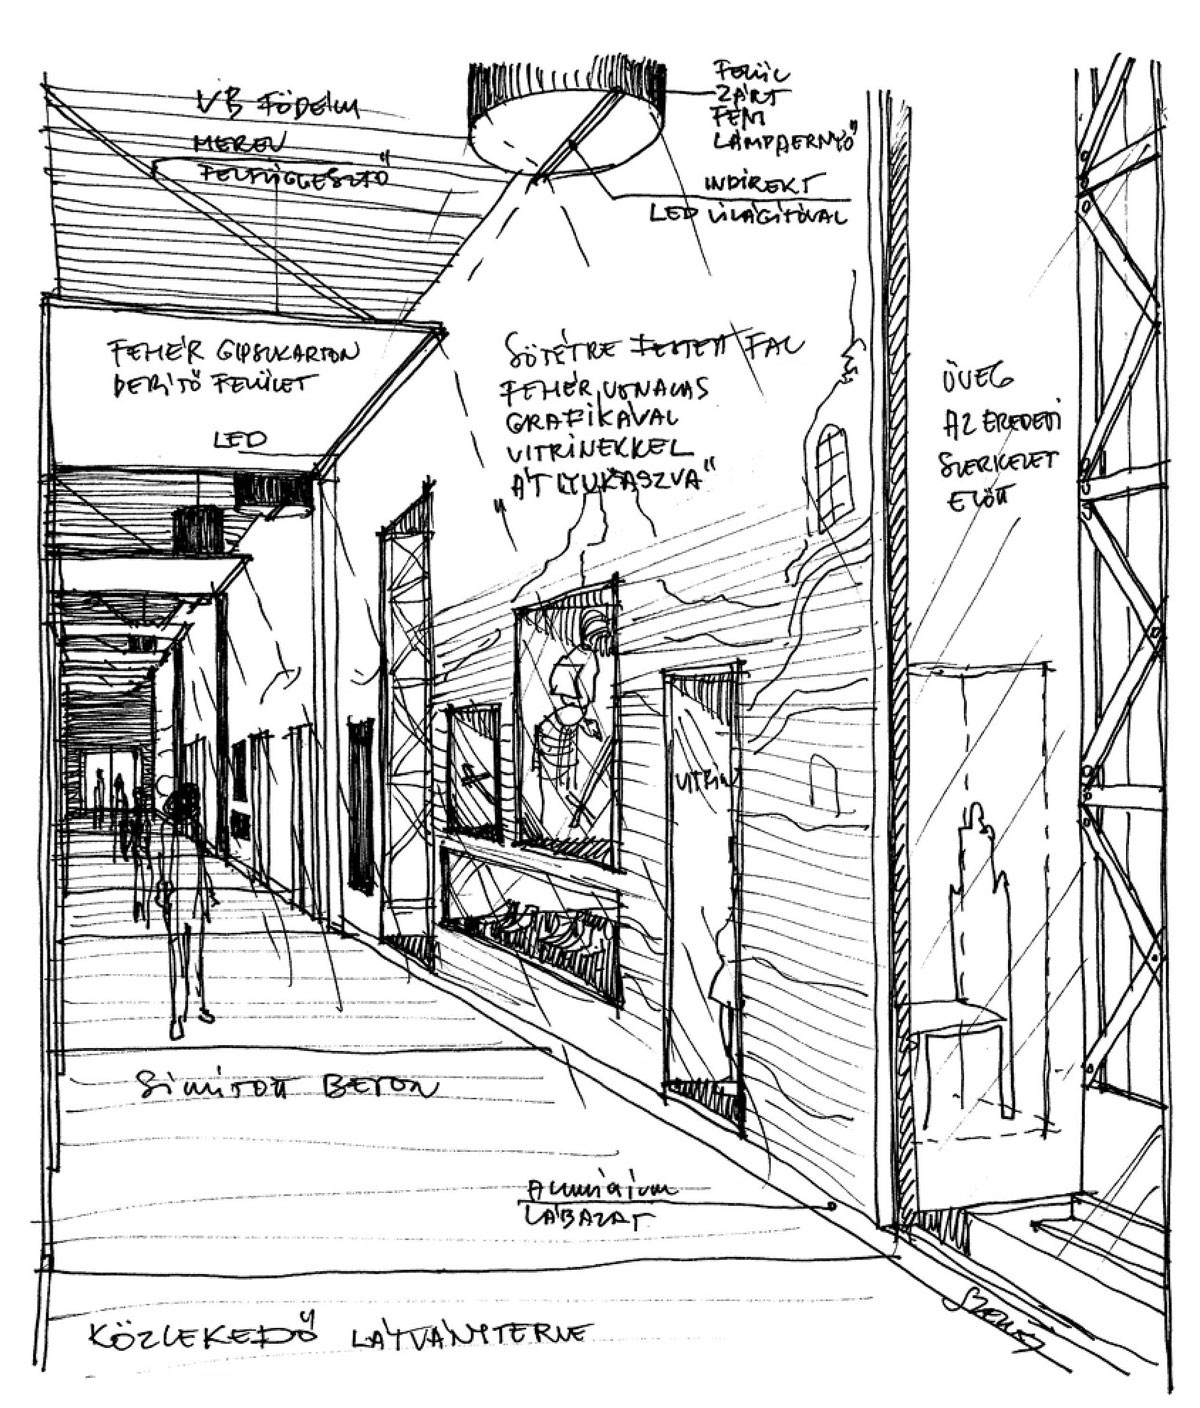 VB FÖDÉM
MEREV
FELFÜGGESZTŐ
FELÜL
ZÁRT
FÉM
LÁMPAERNYŐ
INDIREKT
LED VILÁGÍTÓVAL
FEHÉR GIPSZKARTON
DERÍTŐ FELÜLET
LED
SÖTÉTRE FESTETT FAL
FEHÉR VONALAS
GRAFIKÁVAL
VITRINEKKEL
"ÁTLYUKASZVA"
ÜVEG
AZ EREDETI
SZERKEZET
ELŐTT
VITRIN
SIMÍTOTT BETON
ALUMÍNIUM
LÁBAZAT
KÖZLEKEDŐ LÁTVÁNYTERVE